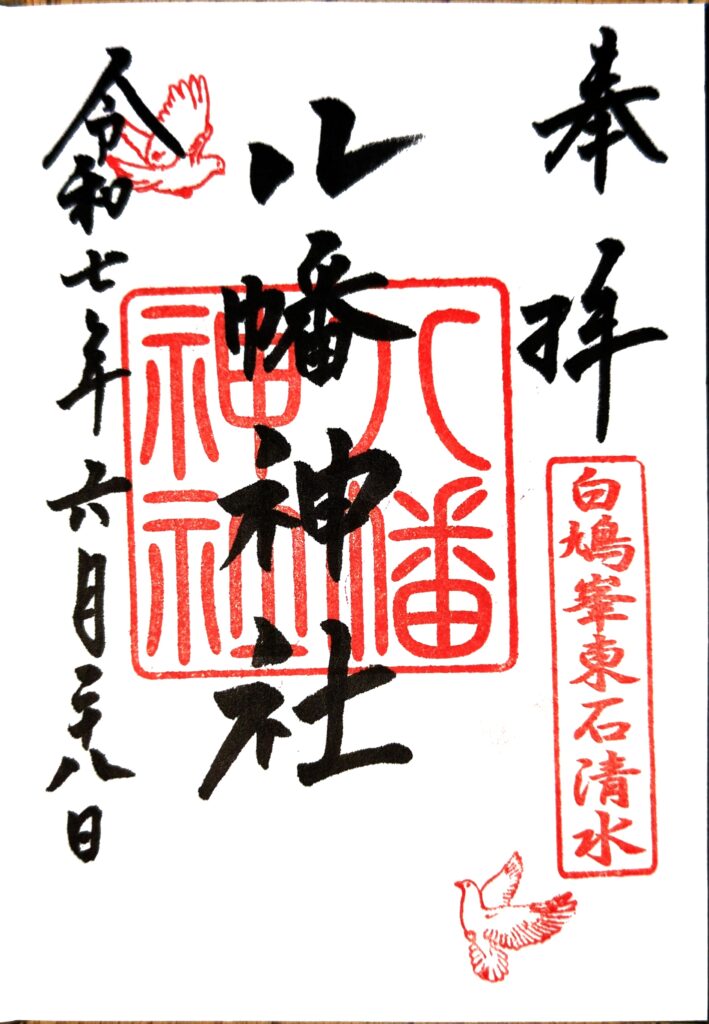 奉拝
白鳩峯東石清水
八幡神社
八幡神社
令和七年六月二十八日